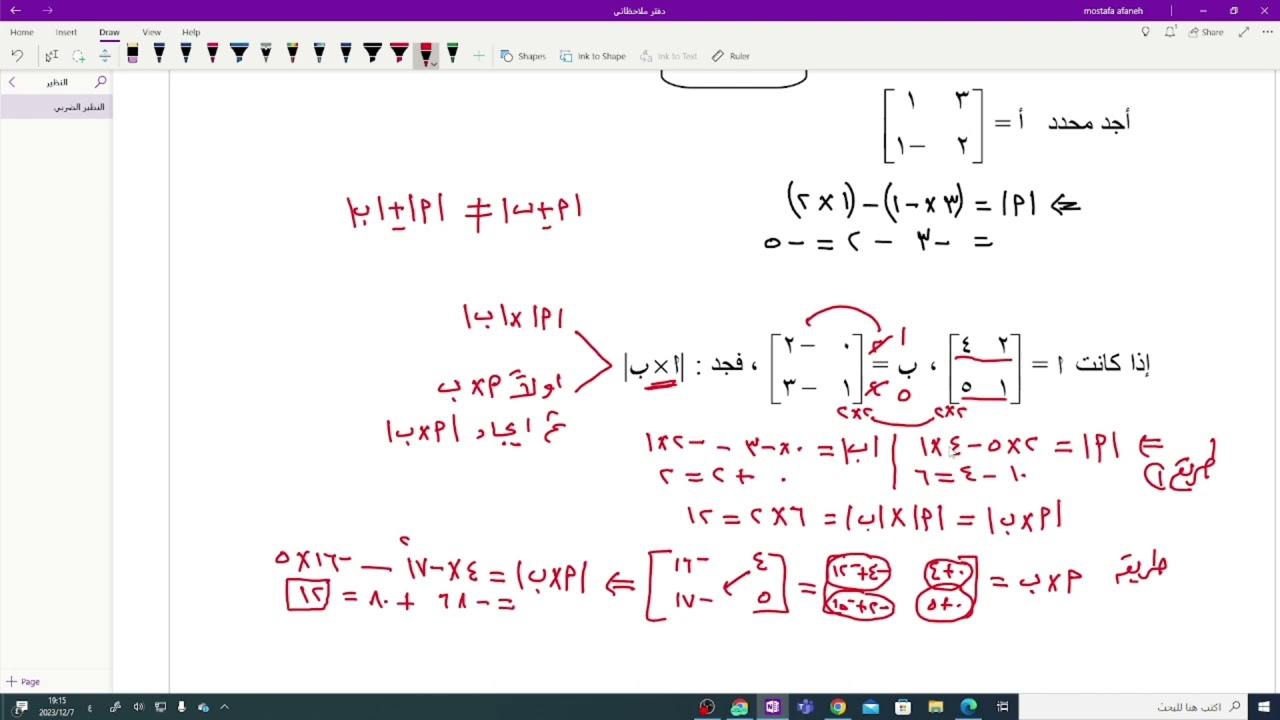 دفتر ملاحظاتي
mostafa afaneh
Home Insert Draw View Help
Shapes Ink to Shape Ink to Text Ruler Share
النظير
النظير الضربي
أجد محدد أ = [٣ ١
٢ -١]
⇐ |م| = (٣ × -١) - (١ × ٢)
= -٣ - ٢ = -٥
|م ± ب| ≠ |م| ± |ب|
إذا كانت أ = [٢ ٤ ، ب = [٠ -٢ ، فجد : |أ×ب|
١ ٥] ١ -٣]
١
٥
٢×٢ ٢×٢
|م| × |ب|
اولاً م×ب
ثم ايجاد |م×ب|
طريقة ١
⇐ |م| = ٢×٥ - ٤×١ | |ب| = ٠×-٣ - -٢×١
١٠ - ٤ = ٦ | ٠ + ٢ = ٢
|م×ب| = |م| × |ب| = ٦×٢ = ١٢
طريقة ٢
م×ب = [٠+٤ -٤+-١٢ = [٤ -١٦ ⇐ |م×ب| = ٤×-١٧ - -١٦×٥
٠+٥ -٢+-١٥] ٥ -١٧]
= -٦٨ + ٨٠ = ١٢
Page
19:15
2023/12/7
اكتب هنا للبحث